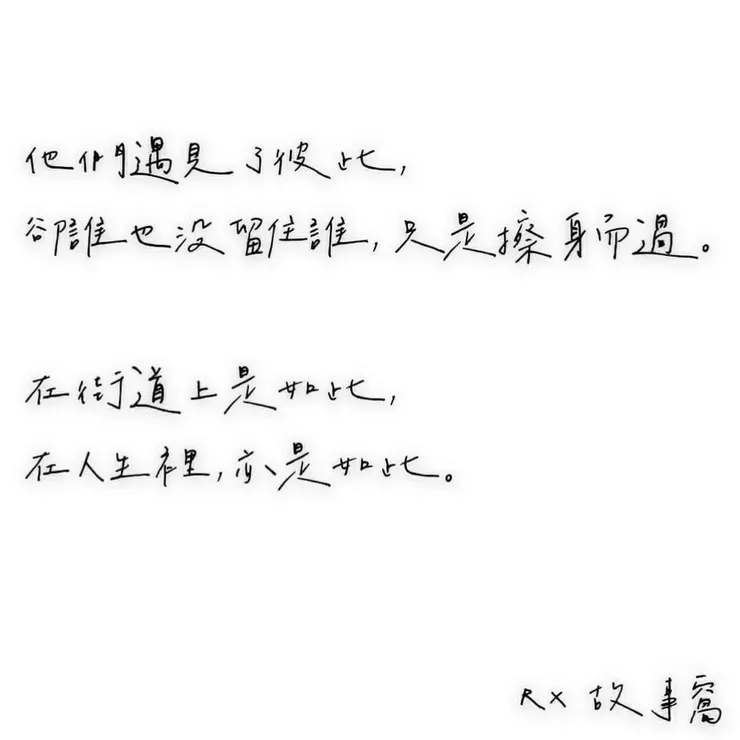 他們遇見了彼此,
卻誰也沒留住誰,只是擦身而過。
在街道上是如此,
在人生裡,亦是如此。
RX 故事窩